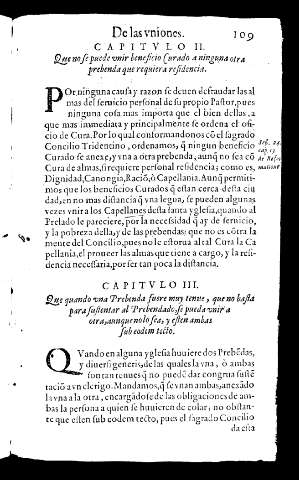 De las vniones. 109
CAPITVLO II.
Que no se puede vnir beneficio Curado a ninguna otra
prebenda que requiera residencia.
POr ninguna causa y razon se deuen defraudar las al
mas del seruicio personal de su propio Pastor, pues
ninguna cosa mas importa que el bien dellas, a
que mas immediata y principalmente se ordena el ofi-
cio de Cura. Por lo qual conformandonos cõ el sagrado
Concilio Tridentino, ordenamos, q̃ ningun beneficio
Curado se anexe, y vna a otra prebenda, aunq̃ no sea cõ
Cura de almas, si requiere personal residencia; como es,
Dignidad, Canongia, Raciõ, ò Capellania. Aunq̃ permiti-
mos que los beneficios Curados q̃ estan cerca desta ciu
dad, en no mas distancia q̃ vna legua, se pueden algunas
vezes vnir a los Capellanes desta santa yglesia, quando al
Prelado le pareciere, por la necessidad q̃ ay de seruicio,
y la pobreza della, y de las prebendas: que no es cõtra la
mente del Concilio, pues no le estorua al tal Cura la Ca
pellania, el proueer las almas que tiene a cargo, y la resi-
dencia necessaria, por ser tan poca la distancia.
Ses. 24.
cap. 13.
de Refor
matione
CAPITVLO III.
Que quando vna Prebenda fuere muy tenue, que no basta
para sustentar al Prebendado, se pueda vnir a
otra, aunque no lo sea, y esten ambas
sub eodem tecto.
QVando en alguna yglesia huuiere dos Prebẽdas,
y diuersi generis, de las quales la vna, ò ambas
son tan tenues q̃ no puedẽ dar congrua sustẽ
taciõ a vn clerigo. Mandamos, q̃ se vnan ambas, anexãdo
la vna a la otra, encargãdose de las obligaciones de am-
bas la persona a quien se huuieren de colar, no obstan-
te que esten sub eodem tecto, pues el sagrado Concilio
da esta